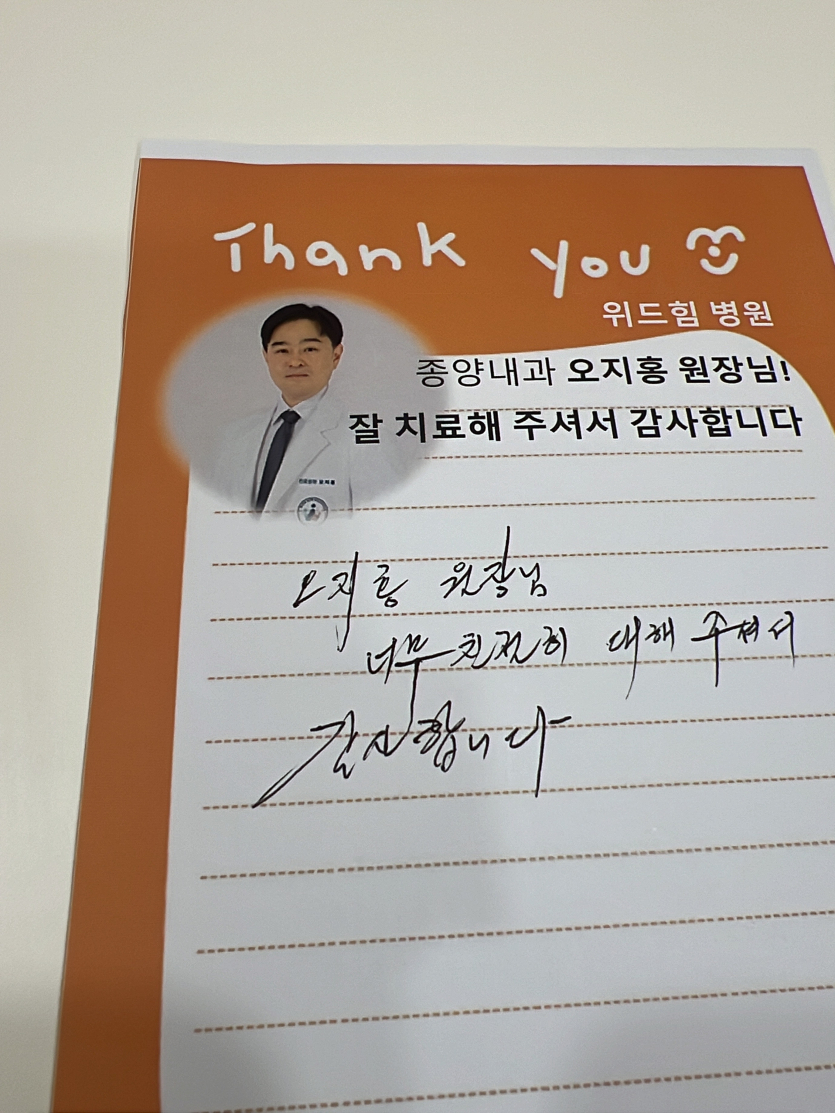 Thank you
위드힘 병원
종양내과 오지홍 원장님!
잘 치료해 주셔서 감사합니다
오지홍 원장님
너무 친절히 대해 주셔서
감사합니다